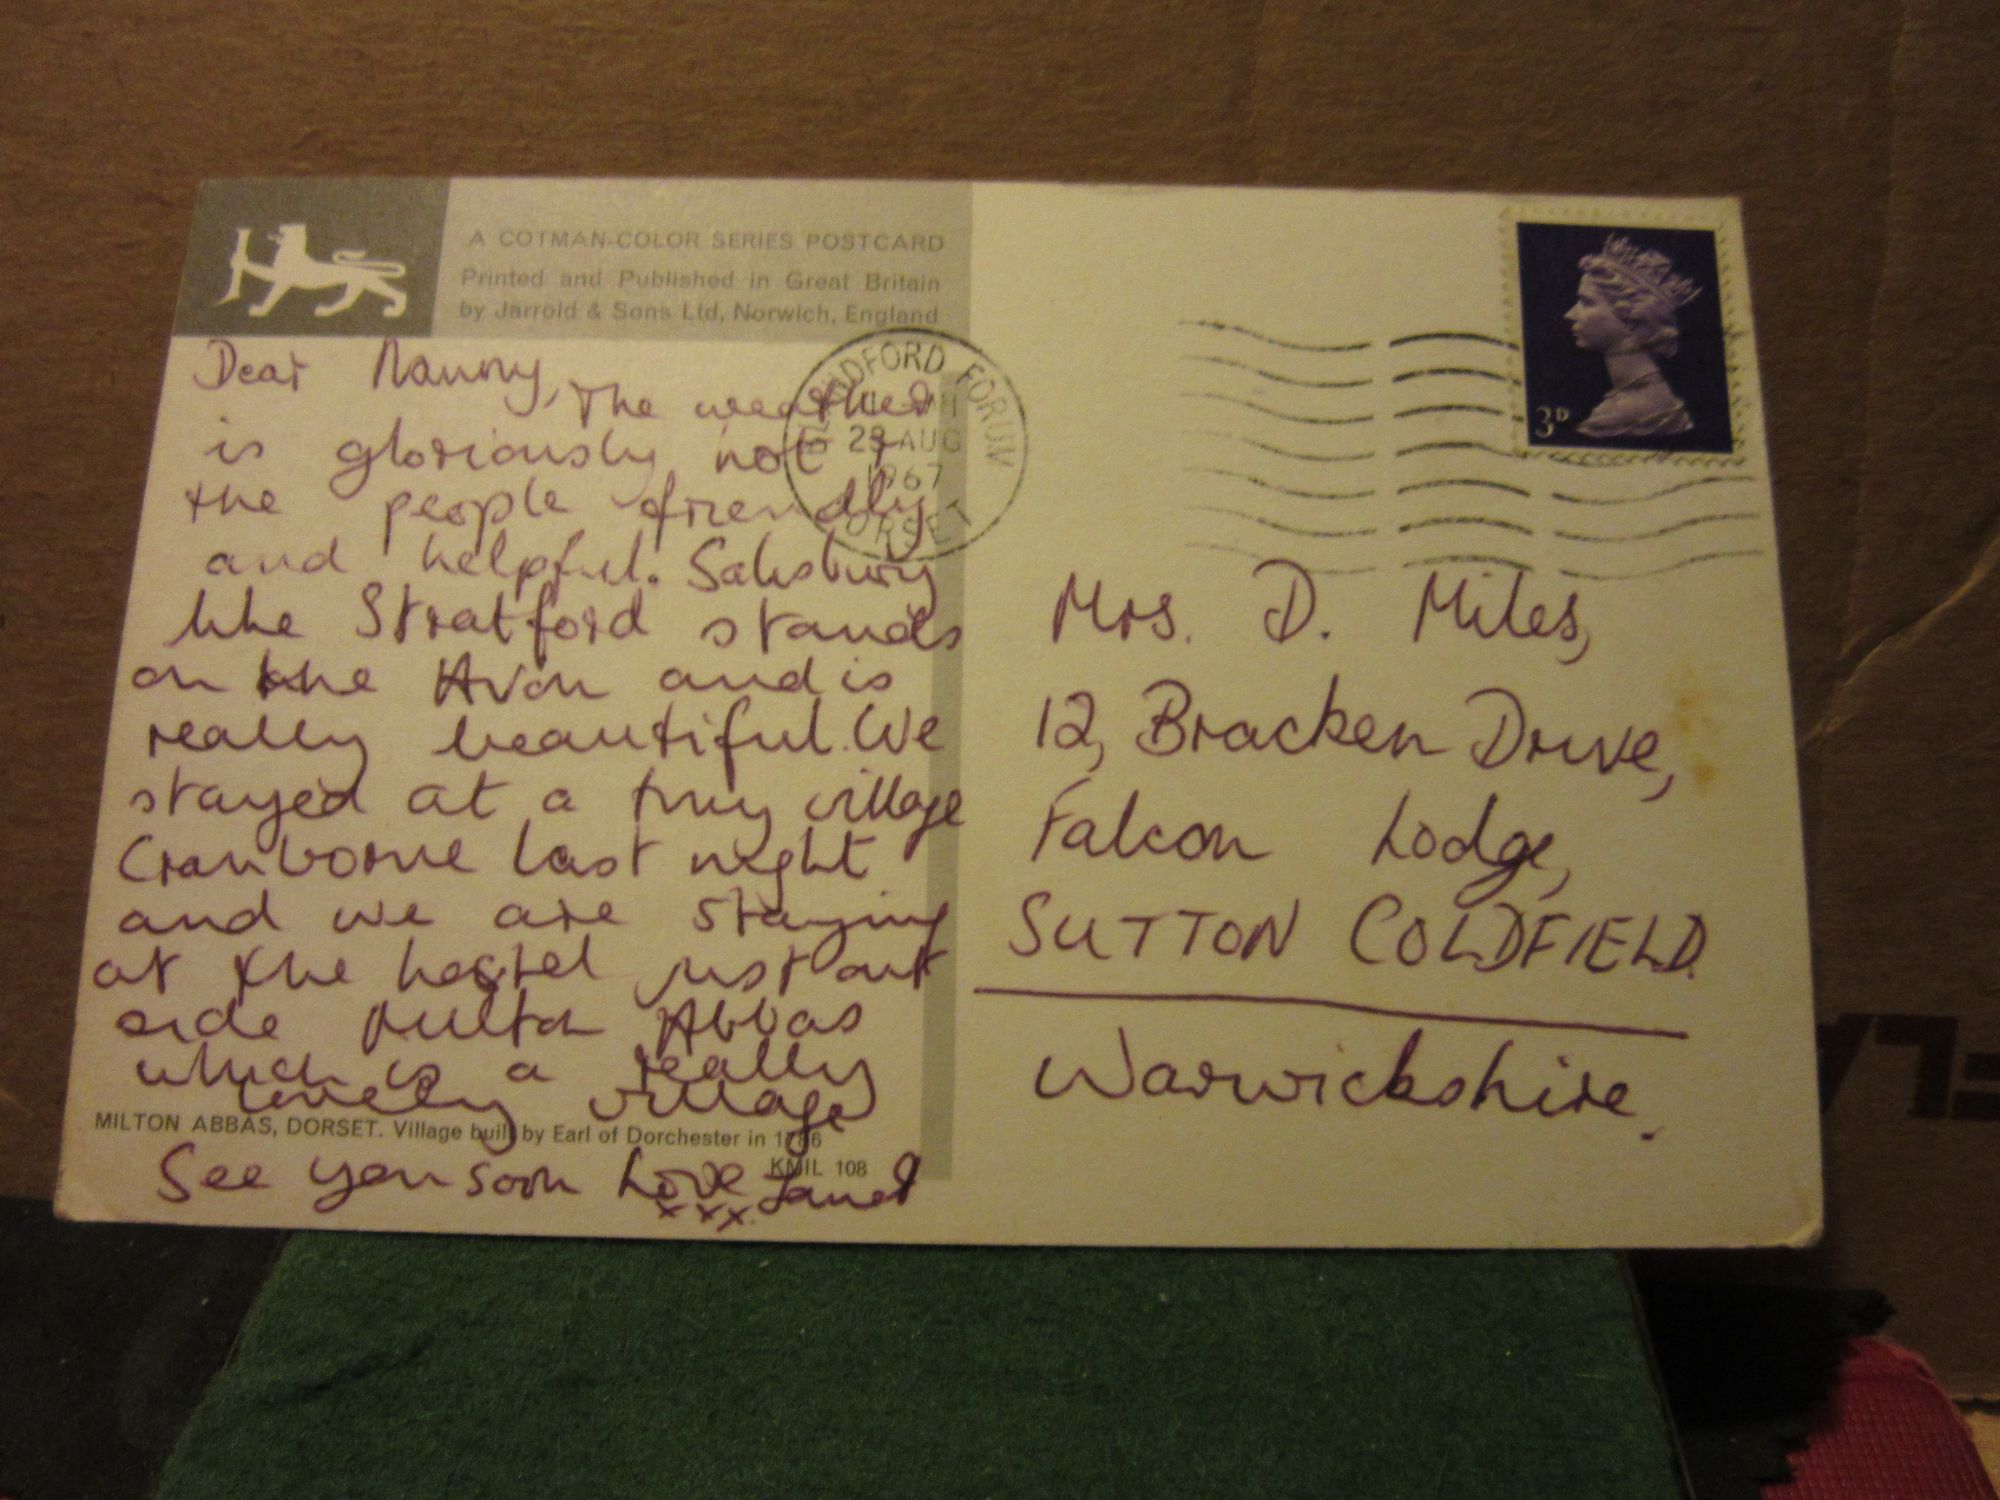 A COTMAN-COLOR SERIES POSTCARD
Printed and Published in Great Britain
by Jarrold & Sons Ltd, Norwich, England
Dear Nanny,
The weather
is gloriously hot &
the people friendly
and helpful. Salisbury
like Stratford stands
on the Avon and is
really beautiful. We
stayed at a tiny village
Cranborne last night
and we are staying
at the hostel just out
side Milton Abbas
which is a really
lovely village
MILTON ABBAS, DORSET. Village built by Earl of Dorchester in 1786
KMIL 108
See you soon Love Janet
xxx
BLANDFORD FORUM
AUG
1967
DORSET
3D
Mrs. D. Miles,
12, Bracken Drive,
Falcon Lodge,
SUTTON COLDFIELD.
Warwickshire.